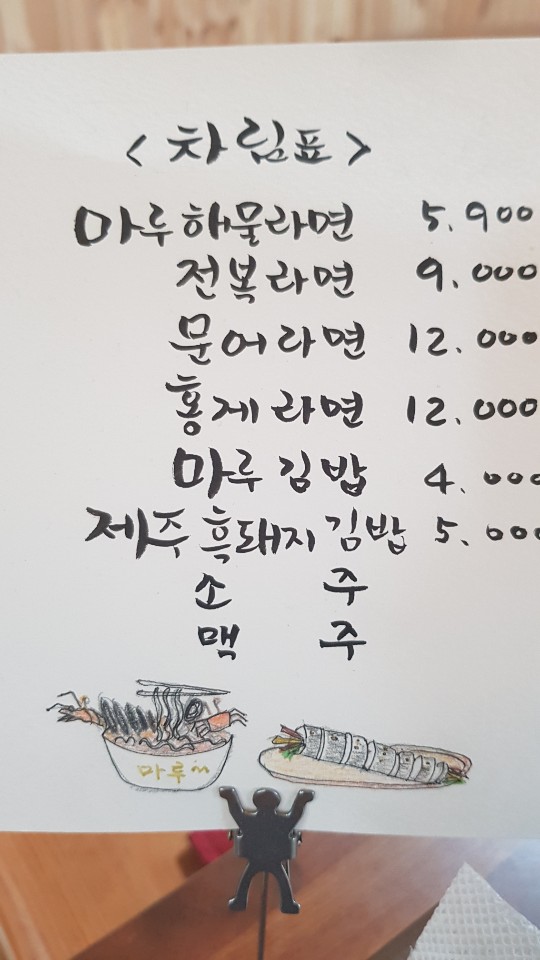 <차림표>
마루해물라면 5.900
전복라면 9.000
문어라면 12.000
홍게라면 12.000
마루김밥 4.000
제주흑돼지김밥 5.000
소 주
맥 주
마루